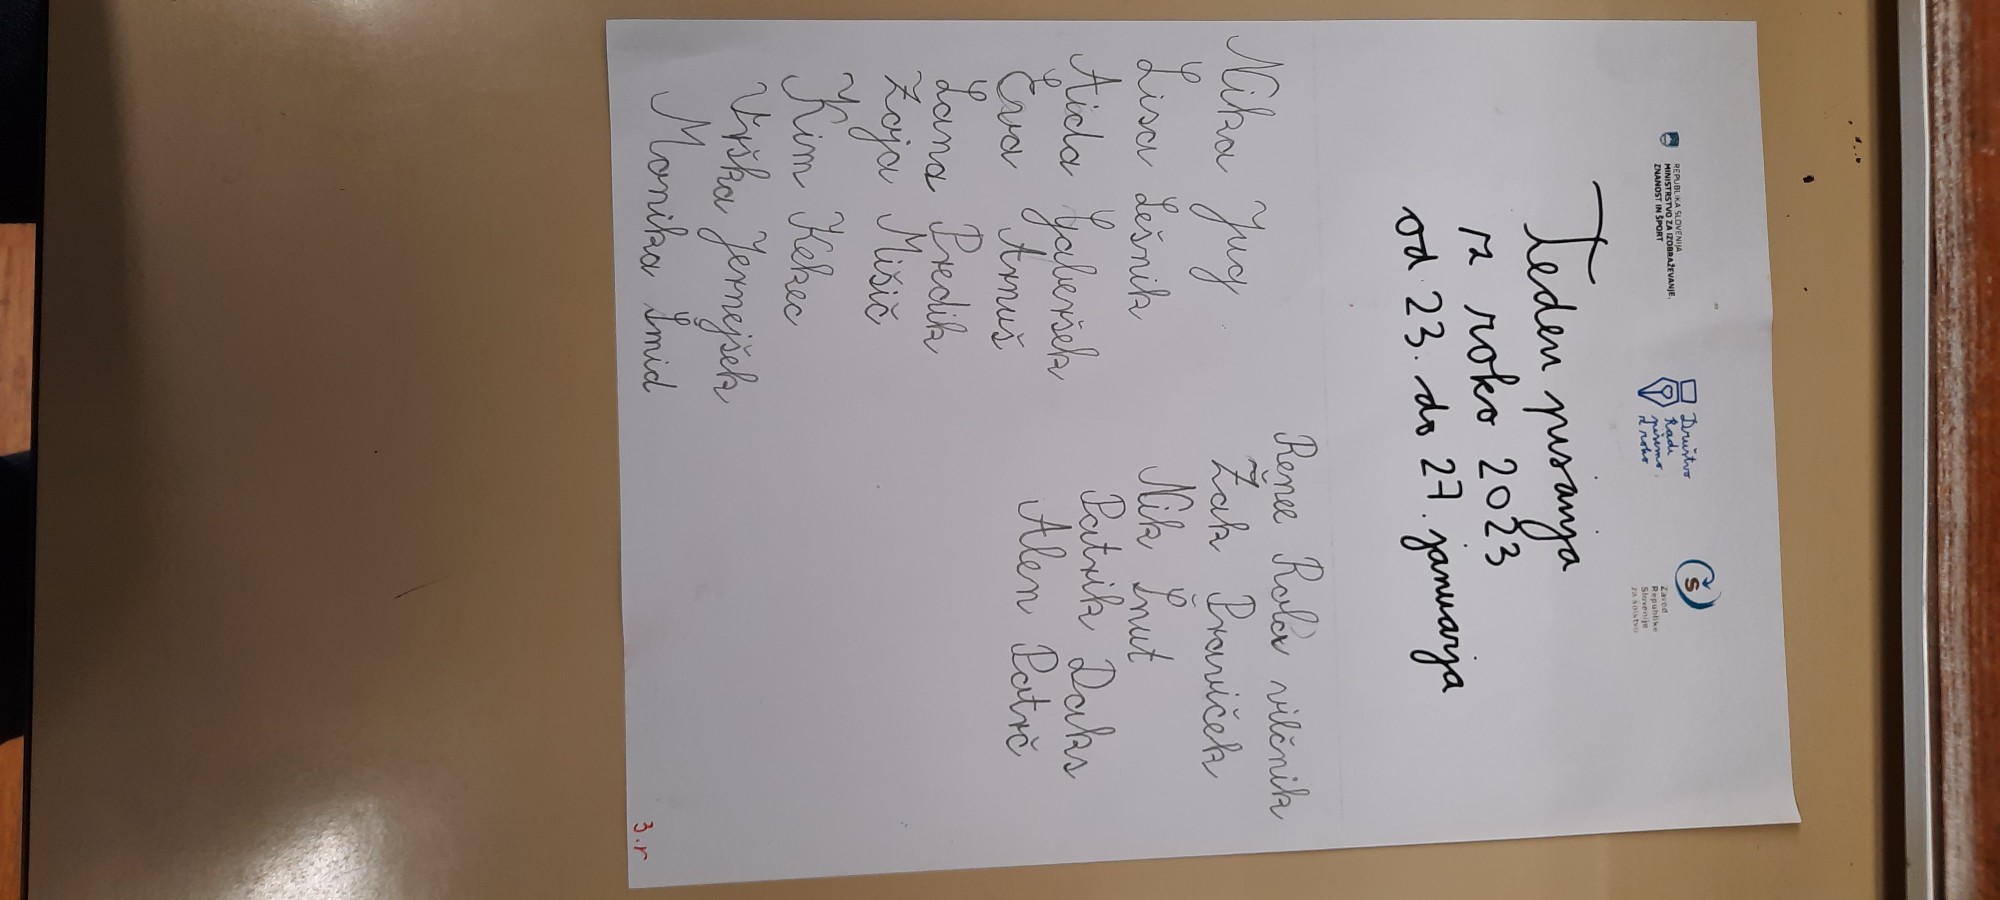 REPUBLIKA SLOVENIJA
MINISTRSTVO ZA IZOBRAŽEVANJE,
ZNANOST IN ŠPORT
Društvo
Radi
pišemo
z roko
Š
Zavod
Republike
Slovenije
za šolstvo
Teden pisanja
z roko 2023
od 23. do 27. januarja
Nika Jug
Lisa Lešnik
Aida Gaberšek
Eva Arnuš
Lana Predik
Zoja Mišič
Kim Kekec
Vrška Jernejšek
Monika Šmid
Renee Rola vilčnik
Žak Praviček
Nik Šnut
Patrik Daks
Alen Patrč
3.r